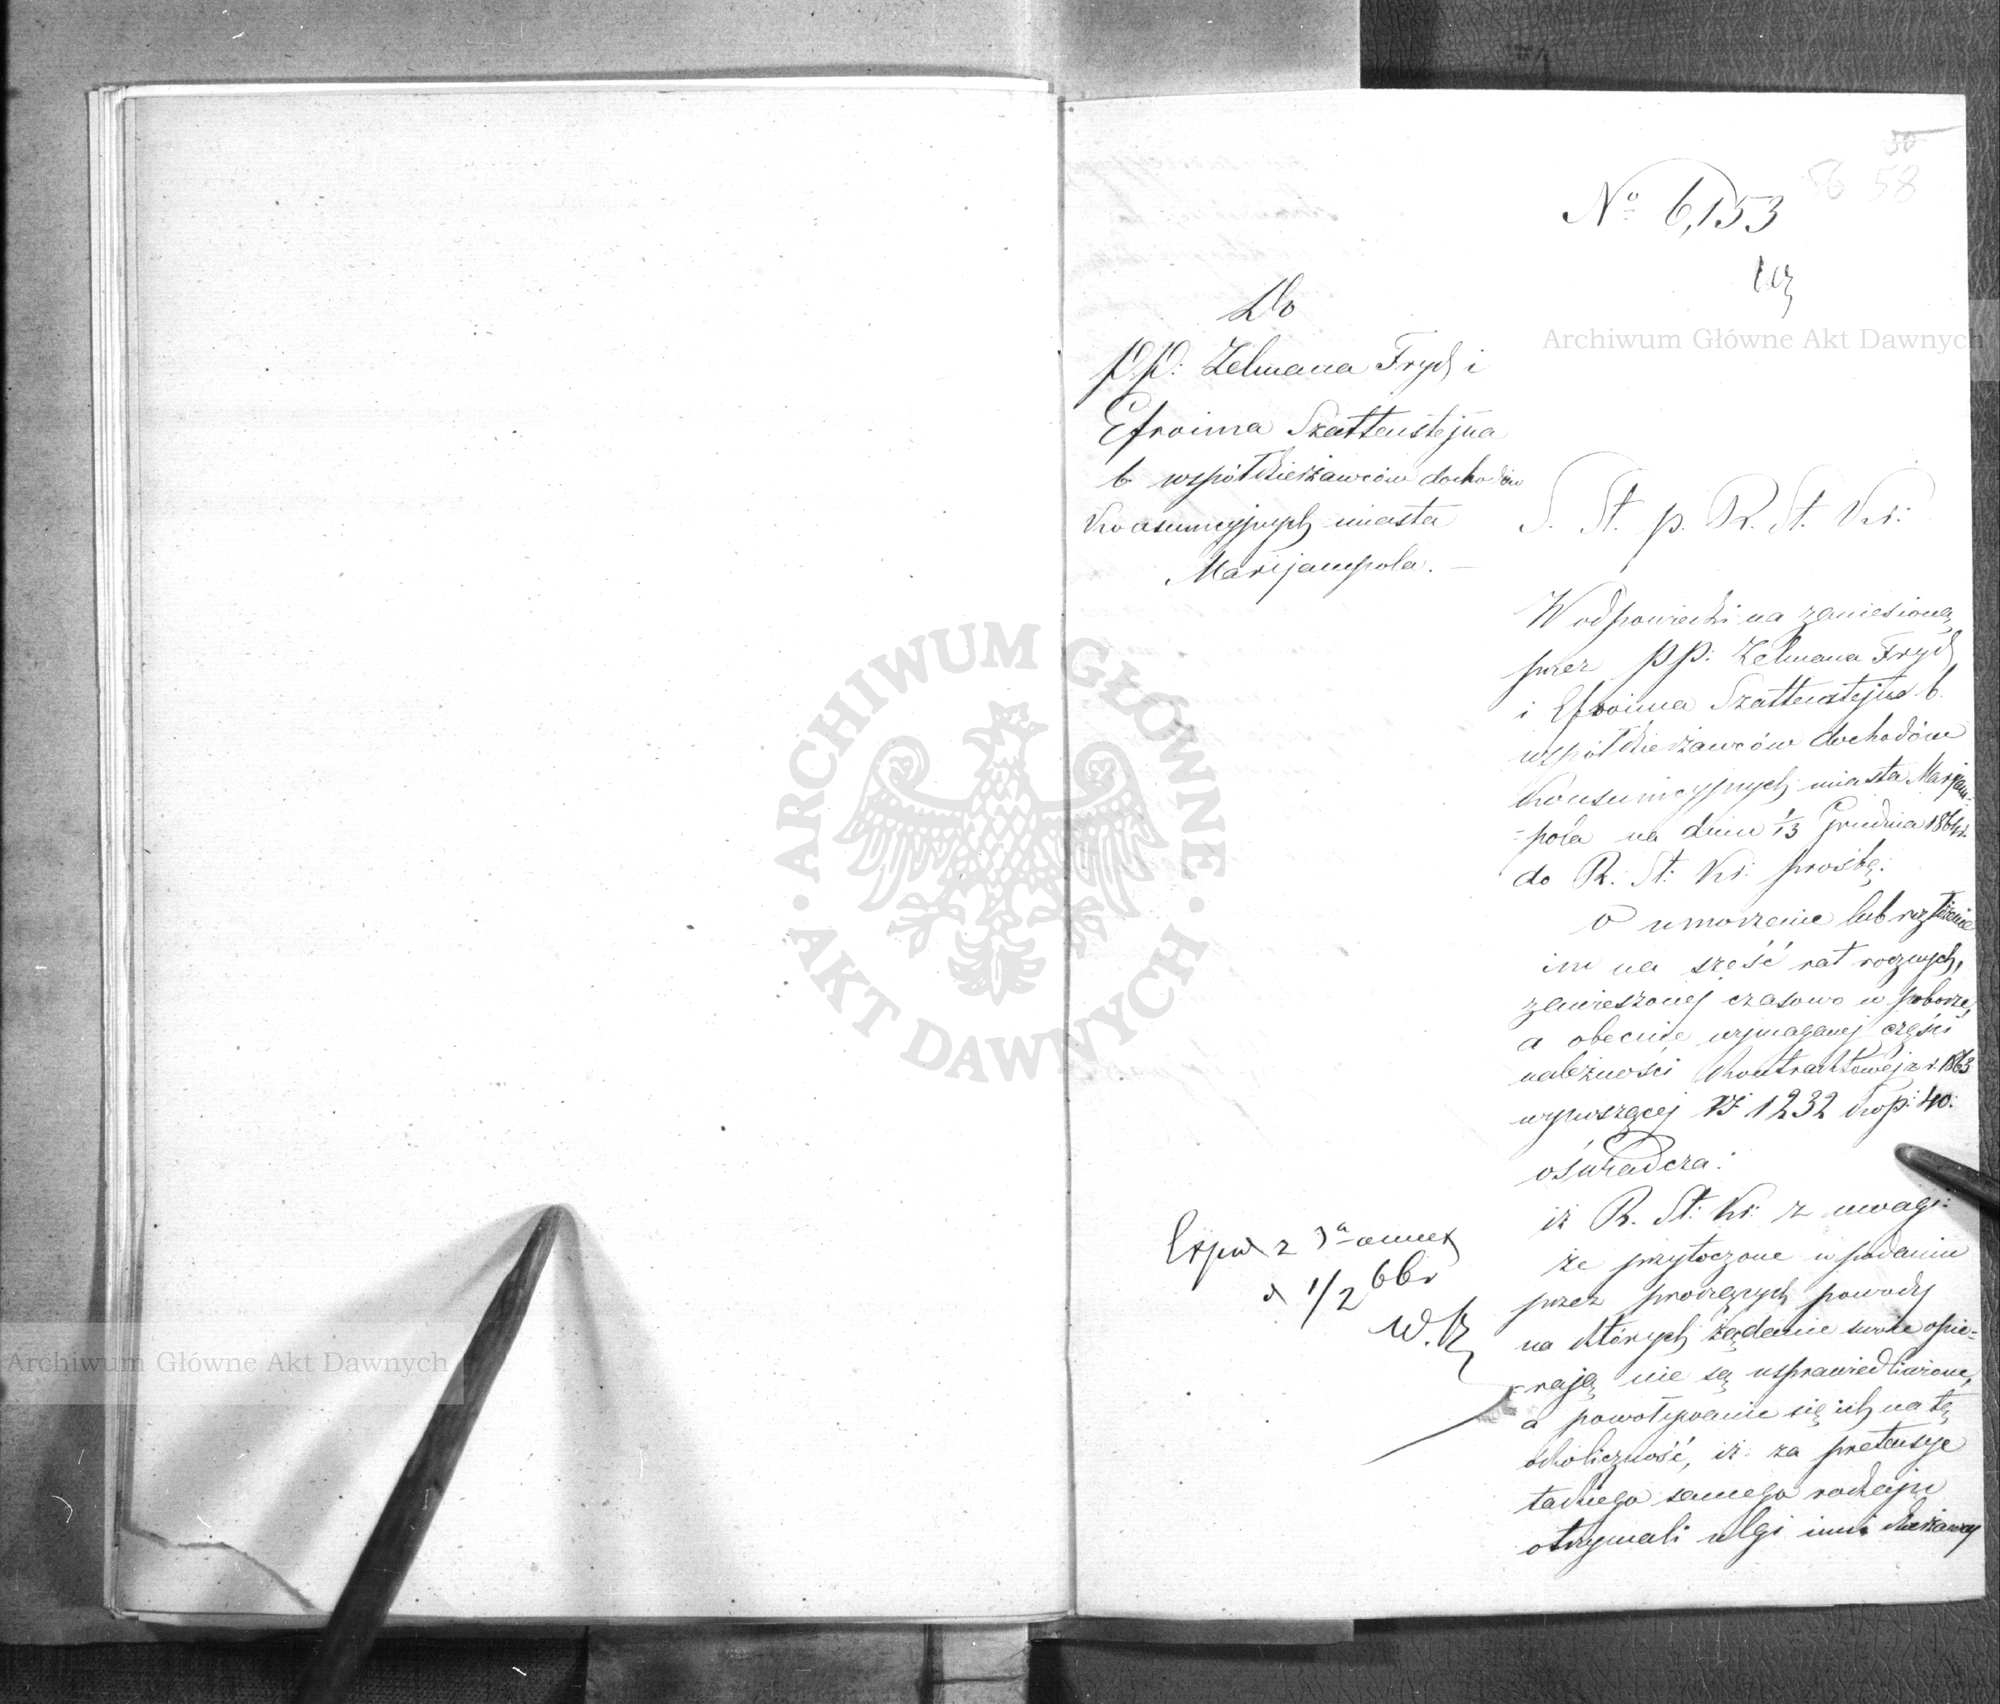 58
№ 6,153
Do
PP: Zelmana Fryd i
Efroima Szattensztejna
b. współdzierżawców dochodów
konsumcyjnych miasta
Marijampola.
S. St. p. R. St. Kr:
W odpowiedzi na zaniesioną
przez PP: Zelmana Fryd
i Efroima Szattensztejna b.
współdzierżawców dochodów
konsumcyjnych miasta Marijam-
-pola na dniu 1/13 Grudnia 1864 r.
do R. St: Kr: prośbę:
O umorzenie lub rozłożenie
im na sześć rat rocznych,
zawieszonej czasowo w poborze,
a obecnie wymaganej części
należności kontraktowej z r. 1863
wynoszącej rs 1232 kop: 40:
oświadcza:
iż R. St: Kr: z uwagi:
że przytoczone w podaniu
przez proszących powody
na których żądanie swoje opie-
-rają nie są usprawiedliwione,
a powoływanie się ich na tę
okoliczność, iż za pretensye
takiego samego rodzaju
otrzymali ulgi inni dzierżawcy
Exped z 3ą annex
d 1/2 6br
Archiwum Główne Akt Dawnych
Archiwum Główne Akt Dawnych
ARCHIWUM GŁÓWNE
AKT DAWNYCH